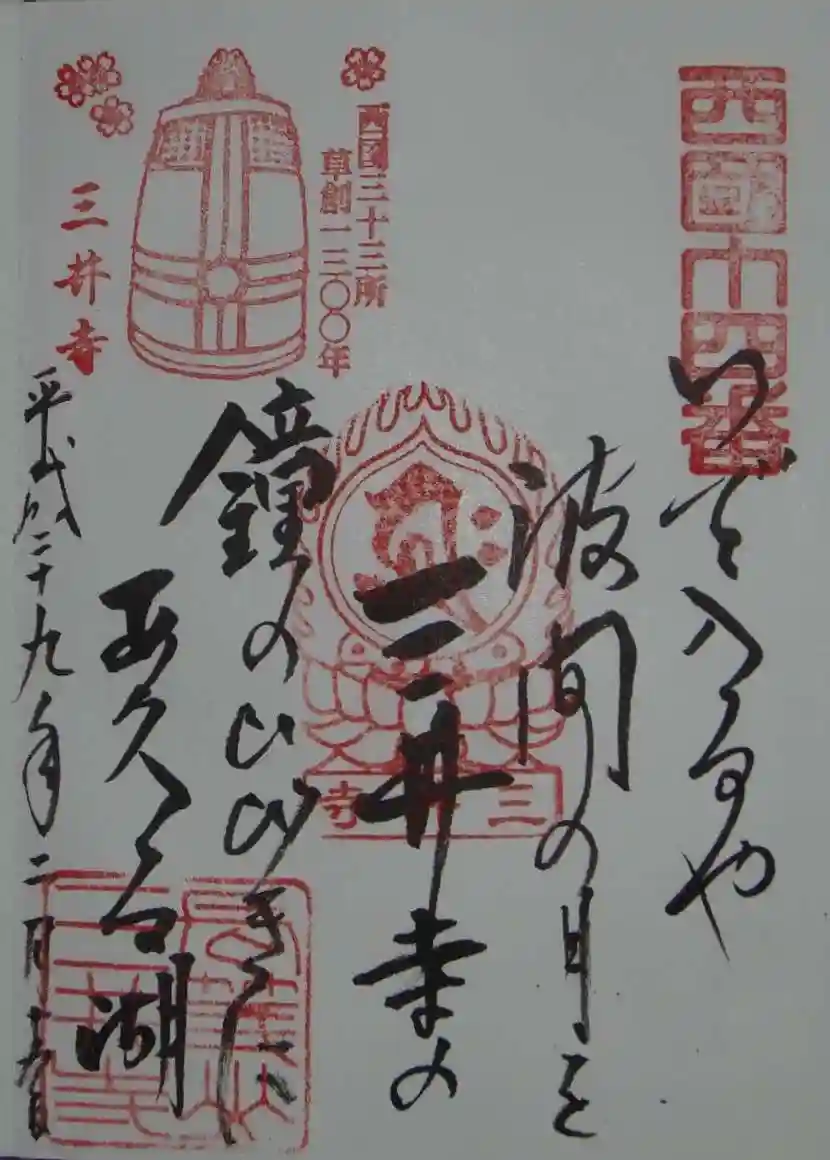 西國十四番
いで入るや
波間の月を
三井寺の
鐘のひゞきに
久る湖
西国三十三所
草創一三〇〇年
三井寺
平成二十九年二月
三井寺